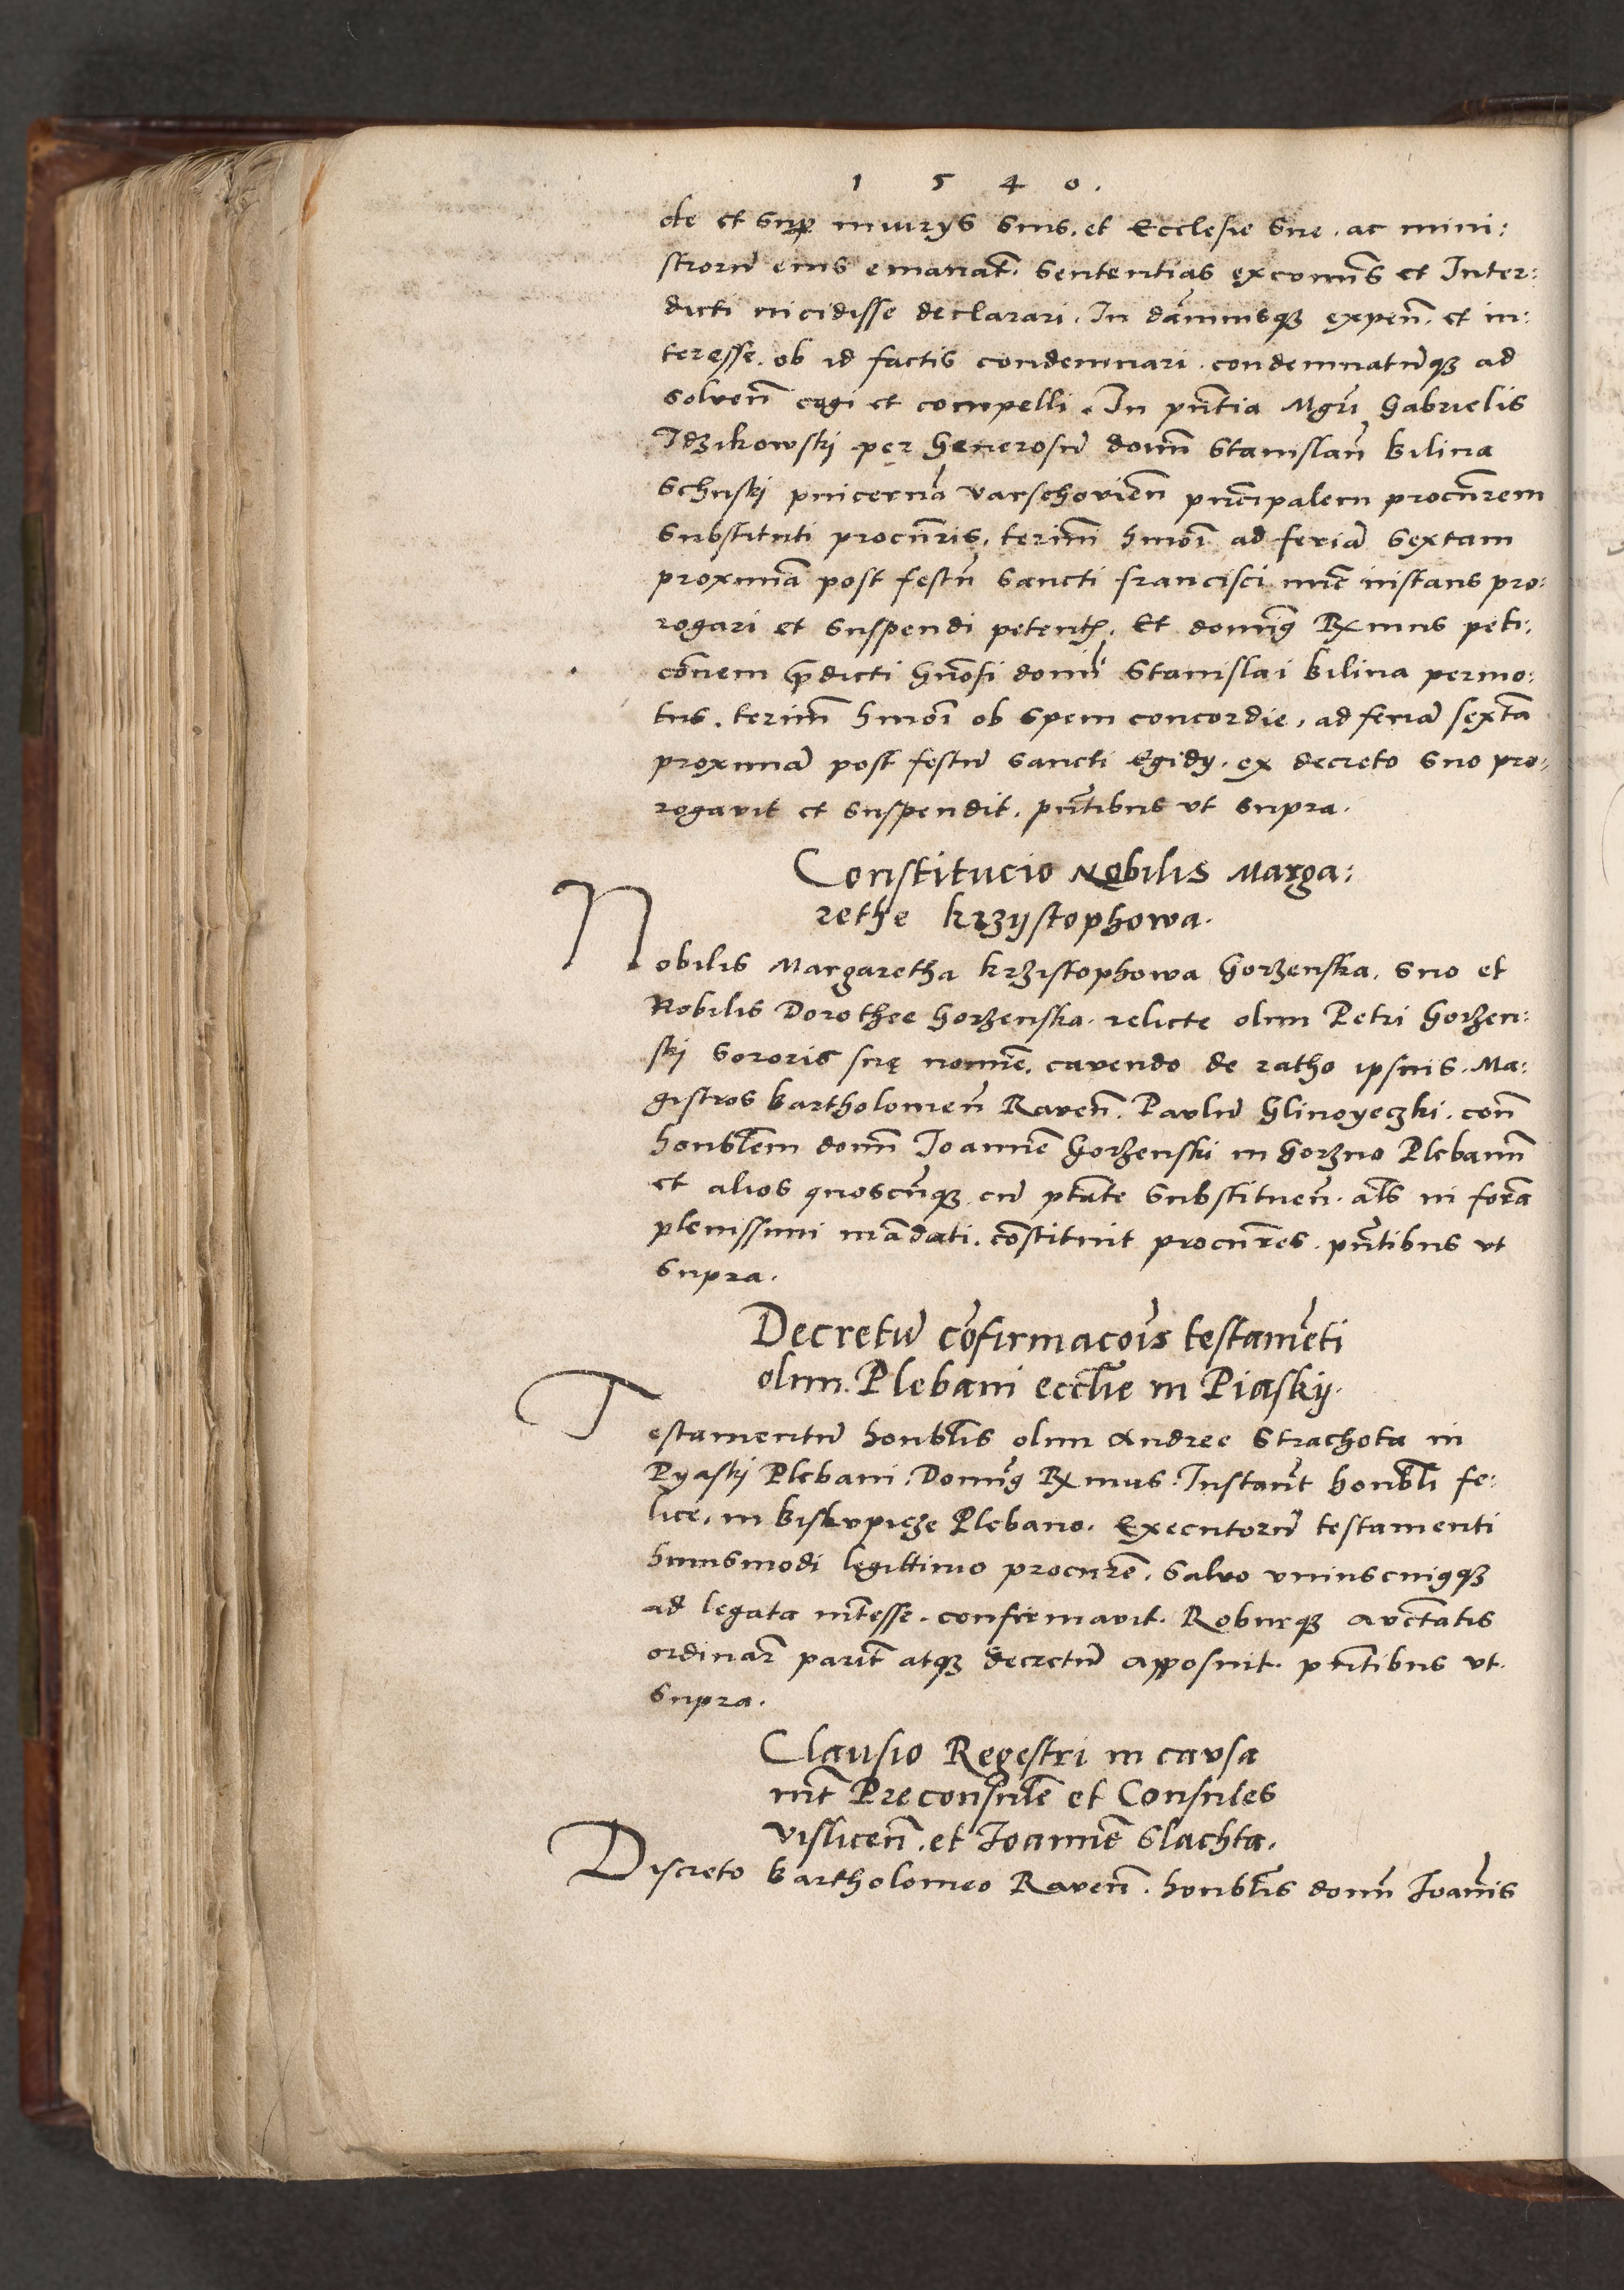 1 5 4 0.
de et sup iniurys suis. et Ecclesie sue. ac mini:
strorū eius emanat̄. sententias excom̄s et Inter:
dicti incidisse declarari. In dāmnisqꝫ expen̄. et in:
teresse. ob id factis condemnari. condemnatūqꝫ ad
solven̄ cogi et compelli. In pn̄tia Mgr̄i Gabrielis
Idzikowskj per Generosū domn̄ Stanislaū Bilina
pincernā varschovien̄ principalem procurōrem
substituti procur̄ris. termin̄ hmōi ad feriā sextam
proximā post festū sancti francisci nūc instans pro:
rogari et suspendi peten̄. Et domin9 Rx̄mus peti:
cōnem p̄dicti gn̄osi domī Stanislai Bilina permo:
tus. termin̄ hmōi ob spem concordie, ad feriā sextā
proximā post festū sancti Egidy. ex decreto suo pro:
rogavit et suspendit. pn̄tibus vt supra.
Constitucio Nobilis Marga:
rethe krzÿstophowa.
Nobilis Margaretha krzistophowa Gorzenska. suo et
Nobilis Dorothee Gorzenska. relicte olim Petri Gorzen:
skj sororis suę nomīe. cavendo de ratho ipsius. Ma:
gistros Bartholomeū Raven̄. Paulū Glinoyeczki. con̄
honblēm domn̄ Joannē Gorzenski in Gorzno Plebanū
et alios quoscūqꝫ cū ptāte substituen̄. al̄s in formā
plenissimi mādati. cōstituit procur̄res. pn̄tibus vt
supra.
Decretū cōfirmacōis testamēti
olim. Plebani eccl̄ie in Piaskÿ.
Testamentū honbl̄is olim Andree Strachota in
Pyaskj Plebani. Domin9 Rx̄mus. Instan̄t honbl̄i fe:
lice. in Biskvpicze Plebano. Executorū testamenti
huiusmodi legittimo procur̄e. Salvo vniuscuiq9qꝫ
ad legata int̄esse. confirmavit. Roburqꝫ avctātis
ordinar̄ parit̄ atqꝫ decretū apposuit. pn̄tibus vt.
supra.
Clausio Regestri in cavsa
int̄ Preconsulē et Consules
vislicen̄. et Joannē Slachta.
Discreto Bartholomeo Raven̄. honbl̄is domn̄ Joānis